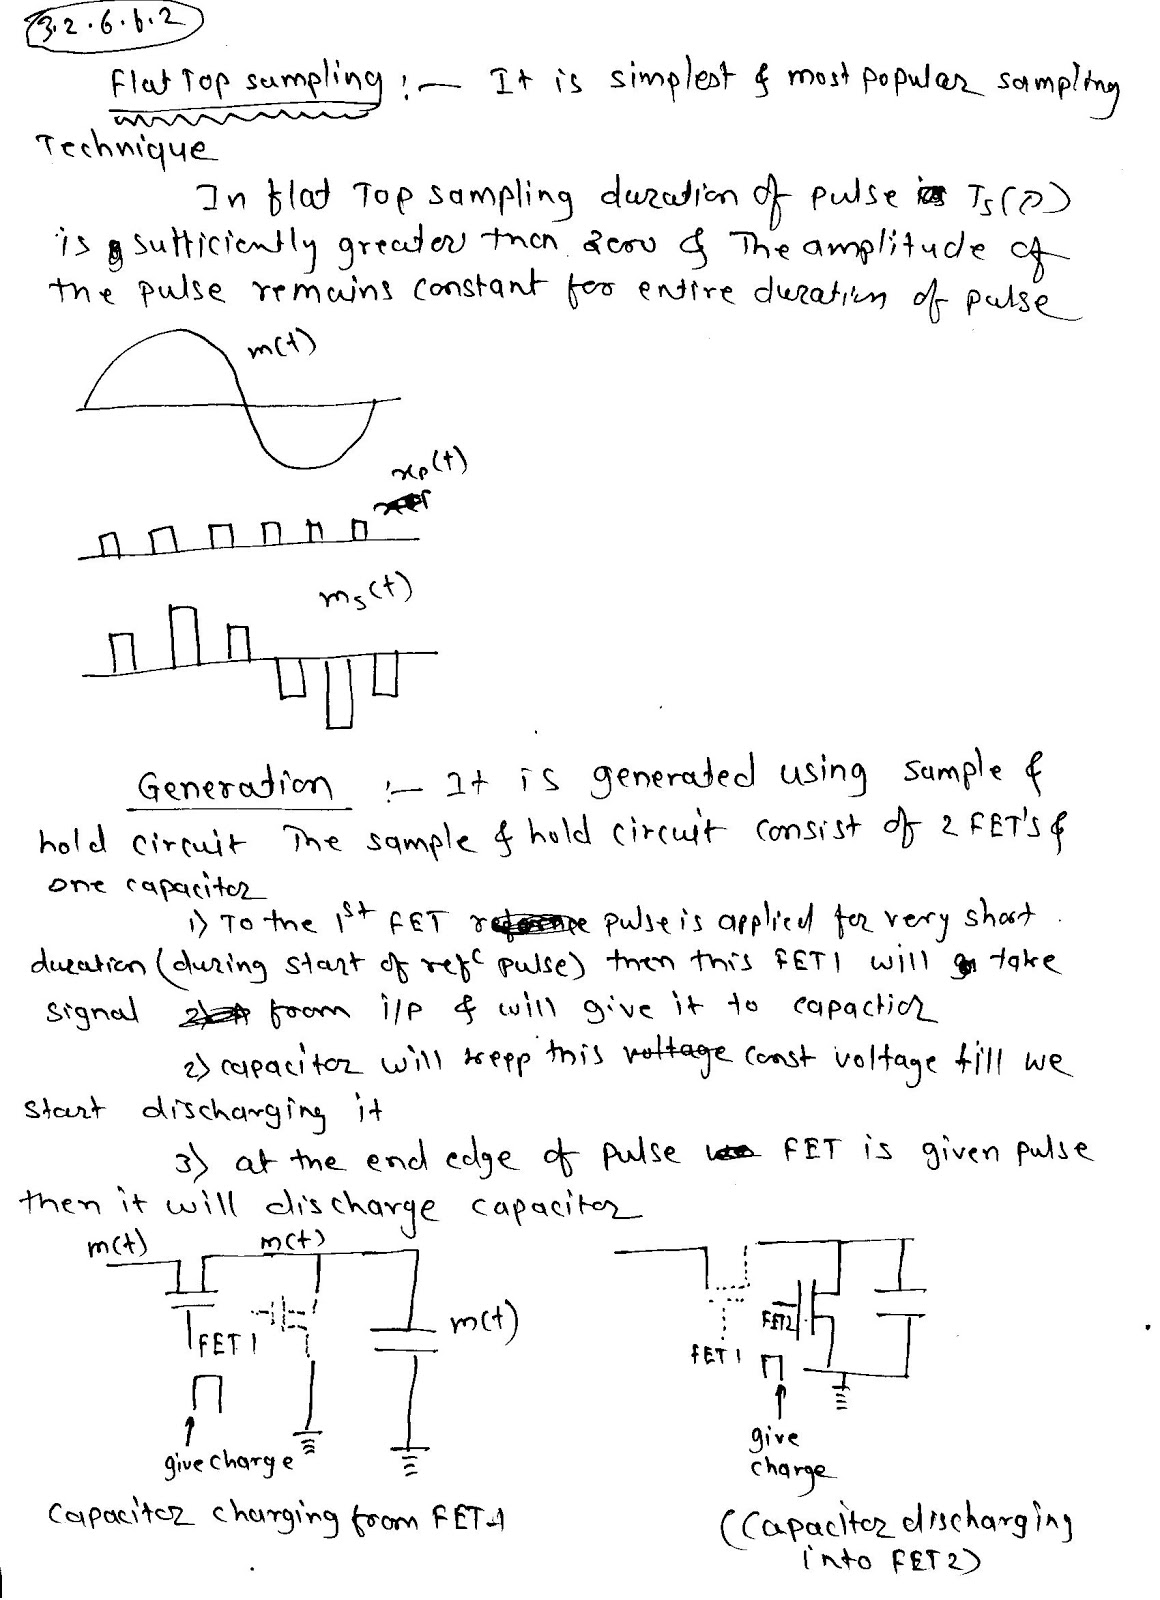 3.2.6.b.2
Flat Top sampling :- It is simplest & most popular sampling
Technique
In flat Top sampling duration of pulse Ts(P)
is sufficiently greater then zero & The amplitude of
the pulse remains constant for entire duration of pulse
m(t)
xp(t)
ms(t)
Generation :- It is generated using sample &
hold circuit The sample & hold circuit consist of 2 FET's &
one capacitor
1) To the 1st FET pulse is applied for very short
duration (during start of refc pulse) then this FET1 will take
signal from i/p & will give it to capactior
2) capacitor will keep this voltage const voltage till we
start discharging it
3) at the end edge of pulse FET is given pulse
then it will discharge capacitor
m(t) m(t)
m(t)
FET 1
FET2
FET 1
give charge
give
charge
capacitor charging from FET-1
(Capacitor discharging
into FET2)